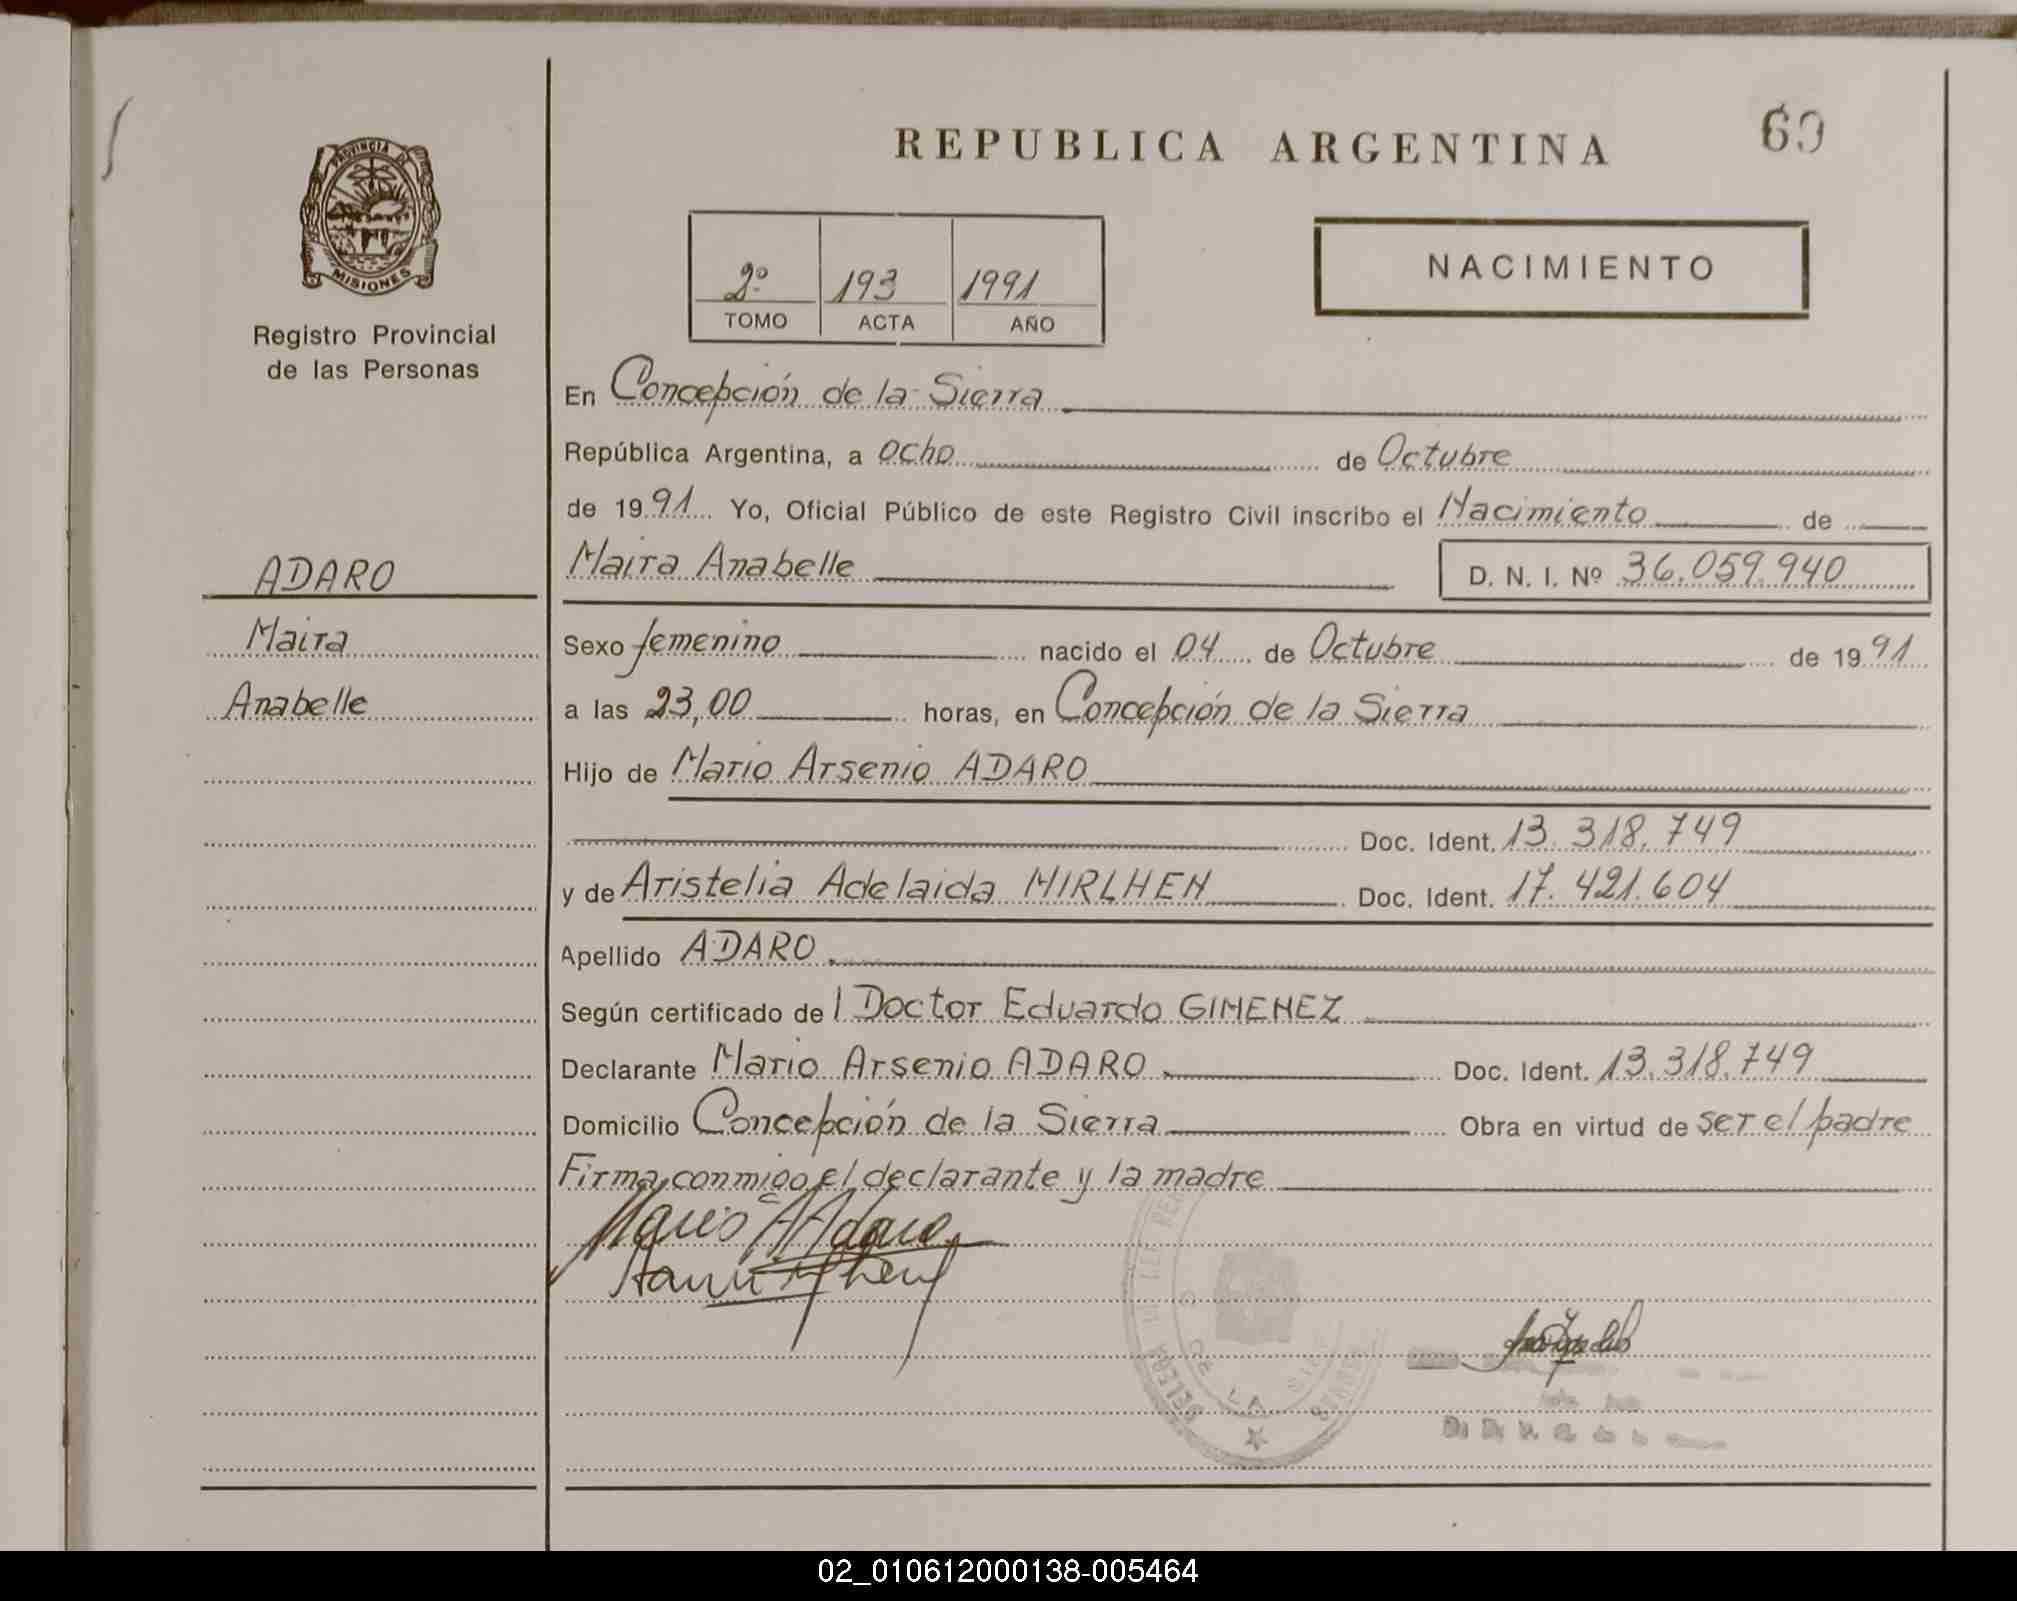 REPUBLICA ARGENTINA
69
PROVINCIA DE
MISIONES
Registro Provincial
de las Personas
2º 193 1991
TOMO ACTA AÑO
NACIMIENTO
En Concepción de la Sierra
República Argentina, a ocho de Octubre
de 1991 Yo, Oficial Público de este Registro Civil inscribo el Nacimiento de
ADARO
Maira Anabelle D. N. I. Nº 36.059.940
Maira
Sexo femenino nacido el 04 de Octubre de 1991
Anabelle
a las 23,00 horas, en Concepción de la Sierra
Hijo de Mario Arsenio ADARO
Doc. Ident. 13.318.749
y de Aristelia Adelaida MIRLHEN Doc. Ident. 17.421.604
Apellido ADARO.
Según certificado del Doctor Eduardo GIMENEZ
Declarante Mario Arsenio ADARO. Doc. Ident. 13.318.749
Domicilio Concepción de la Sierra Obra en virtud de ser el padre
Firma conmigo el declarante y la madre
Mario A Adaro
DE LA
02_010612000138-005464